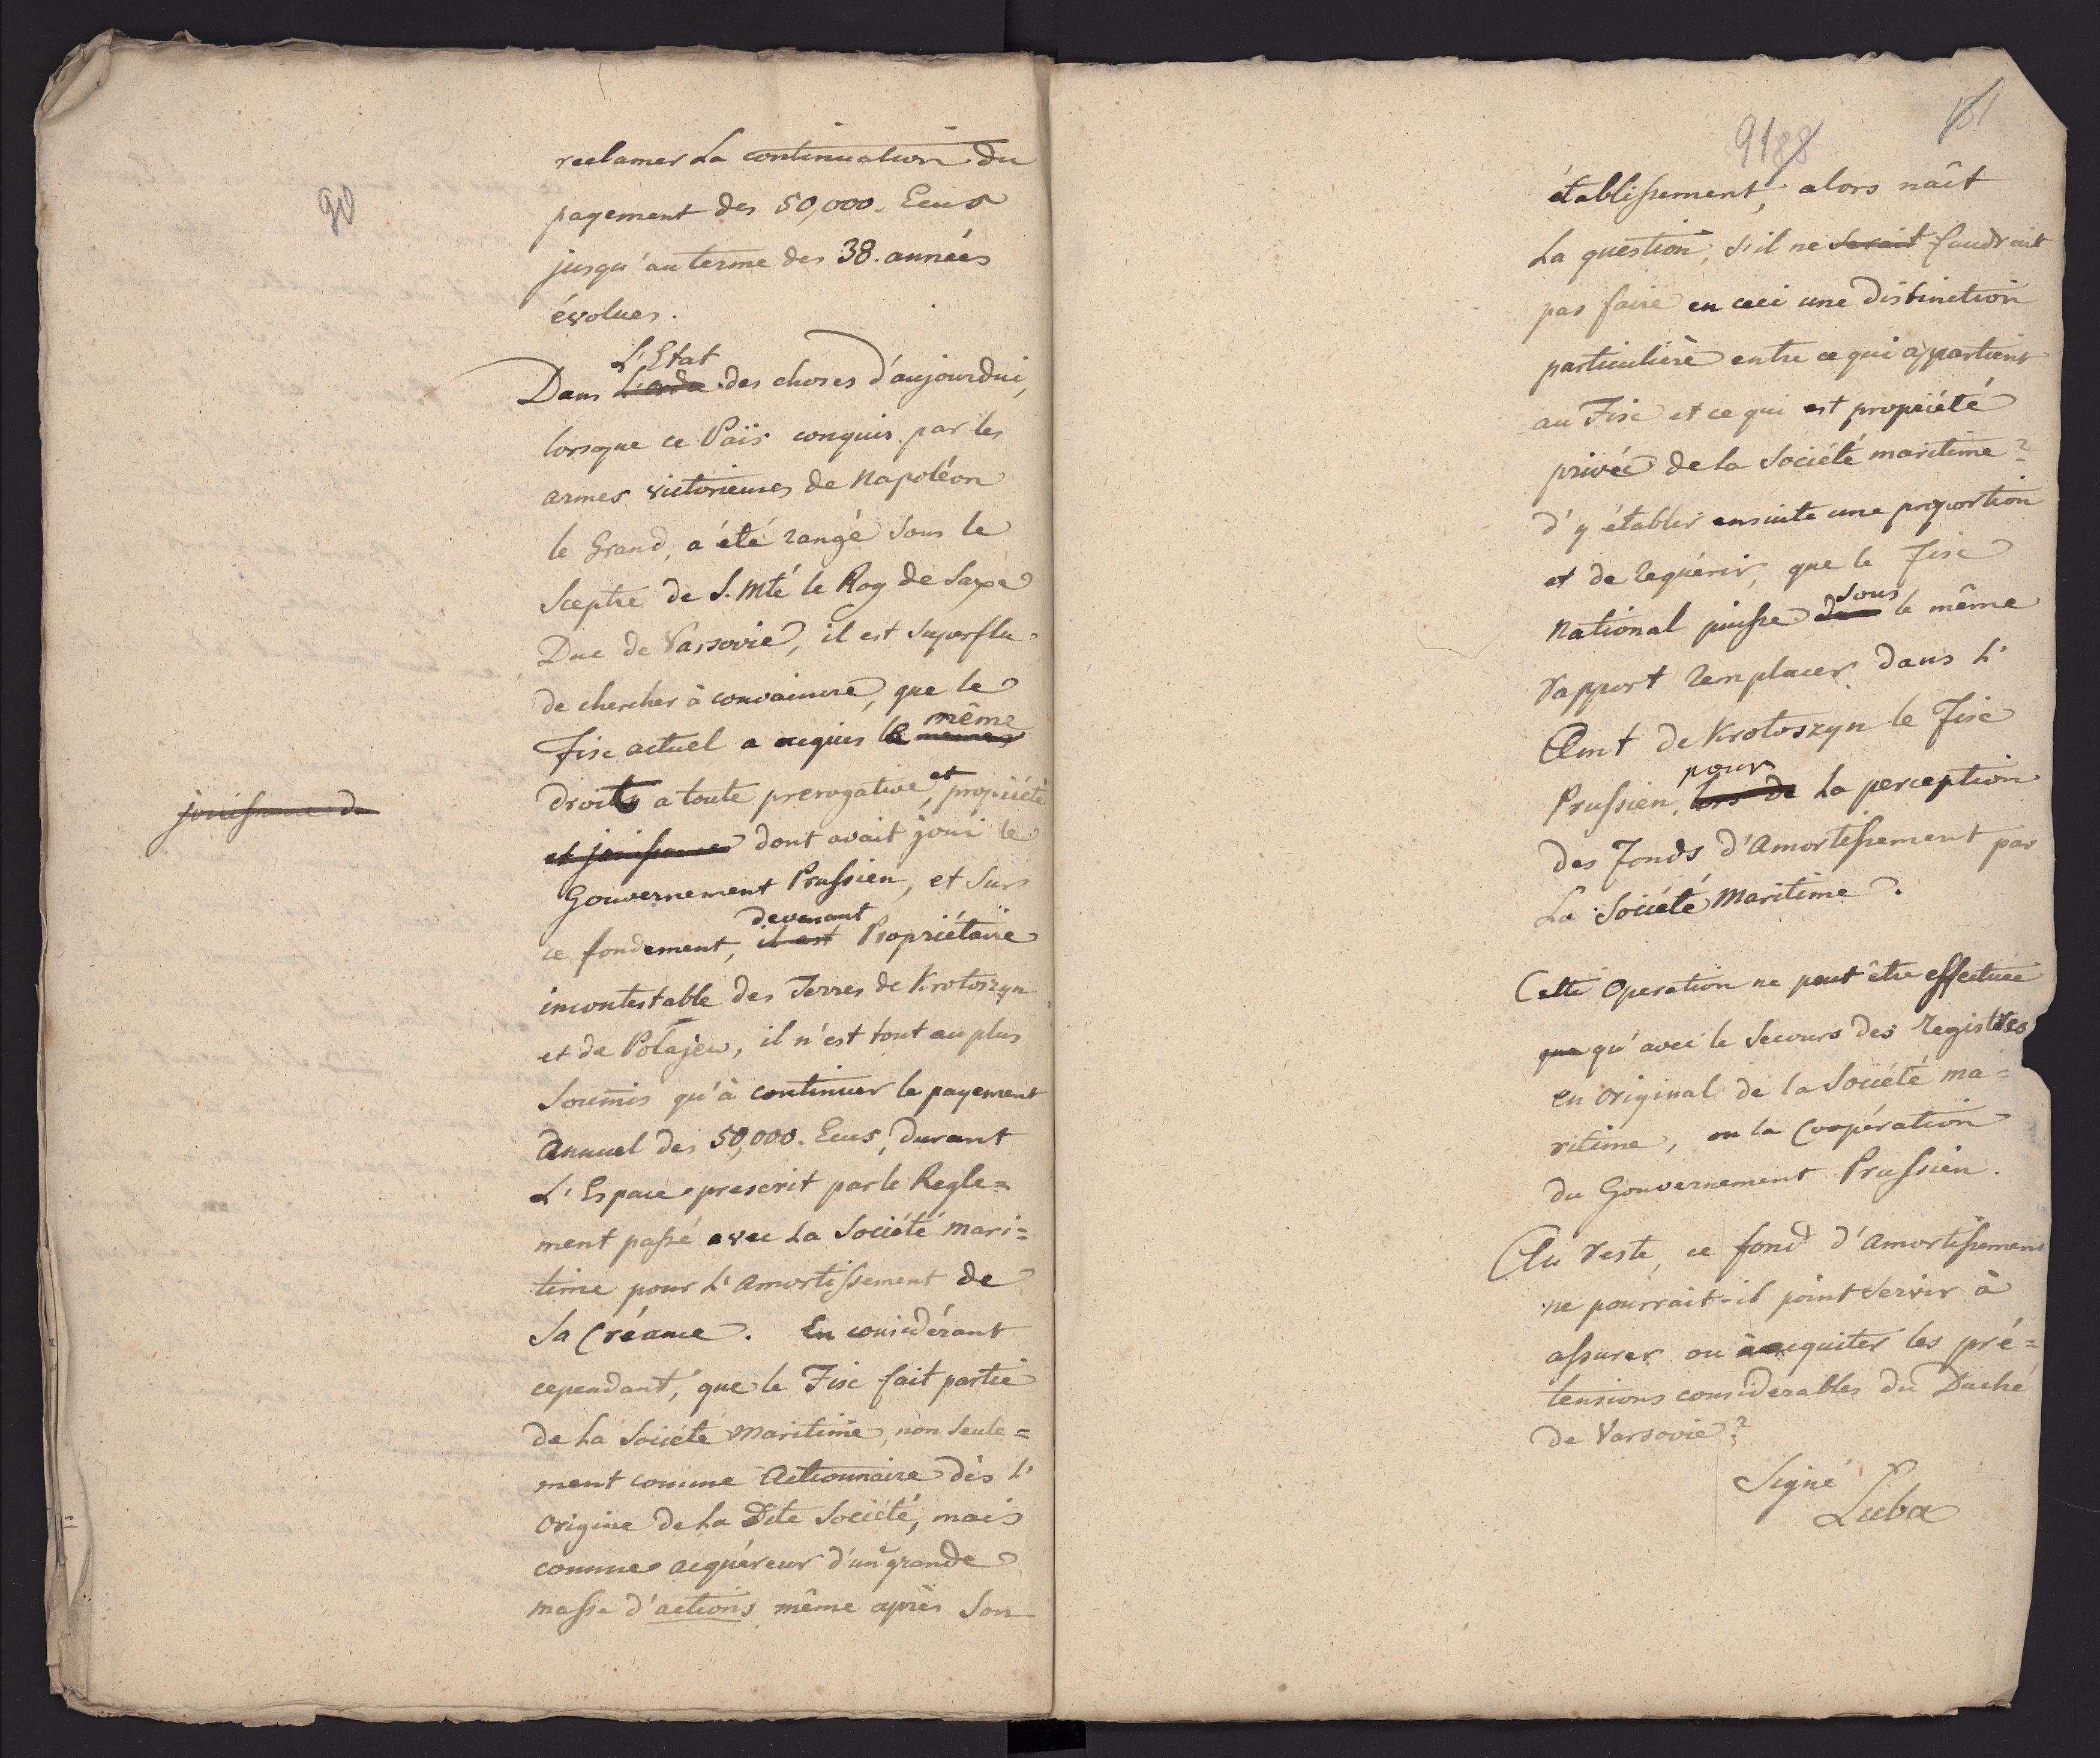 90
reclamer La continuation du
payement des 50,000. Ecus
jusqu'au terme des 38. années
évolues.
L'Etat
Dans L'ordre des choses d'aujourdui,
lorsque ce Païs conquis par les
armes victorieuses de Napoléon
le Grand, a été rangé sous le
Sceptre de S. Mté le Roy de Saxe
Duc de Varsovie, il est superflu
de chercher à convaincre, que le
même
Fisc actuel a acquis le memes
droits a toute prerogative, et propriété
jouissance de
et jouissance dont avait joui le
Gouvernement Prussien, et sur
devenant
ce fondement, il est Propriétaire
incontestable des Terres de Krotoszyn
et de Polajew, il n'est tout au plus
Soumis qu'à continuer le payement
Annuel des 50,000. Ecus, durant
L'Espace prescrit par le Regle=
ment passé avec La Société Mari=
time pour L'Amortissement de
Sa Créance. En considérant
cependant, que le Fisc fait partie
de La Société Maritime, non seule=
ment comme Actionnaire dès L'
Origine de La Dite Société, mais
comme acquéreur d'une grande
masse d'actions même après Son
181
91 88
établissement, alors naît
La question, s'il ne serait faudrait
pas faire en ceci une distinction
particulière entre ce qui appartient
au Fisc et ce qui est propriété
privée de la Société maritime?
d'y établir ensuite une proportion
et de requérir, que le Fisc
sous
National puisse le même
rapport remplacer dans L'
Amt de Krotoszyn le Fisc
pour
Prussien, lors de La perception
des Fonds d'Amortissement par
La Société Maritime.
Cette Operation ne peut être effectuée
que qu'avec le Secours des Registres
en Original de la Société ma=
ritime, ou la Coopération
du Gouvernement Prussien.
Au reste, ce fond d'Amortissement
ne pourrait-il point servir à
assurer ou acquiter les pré=
tensions considerables du Duché
de Varsovie?
Signé
Luba